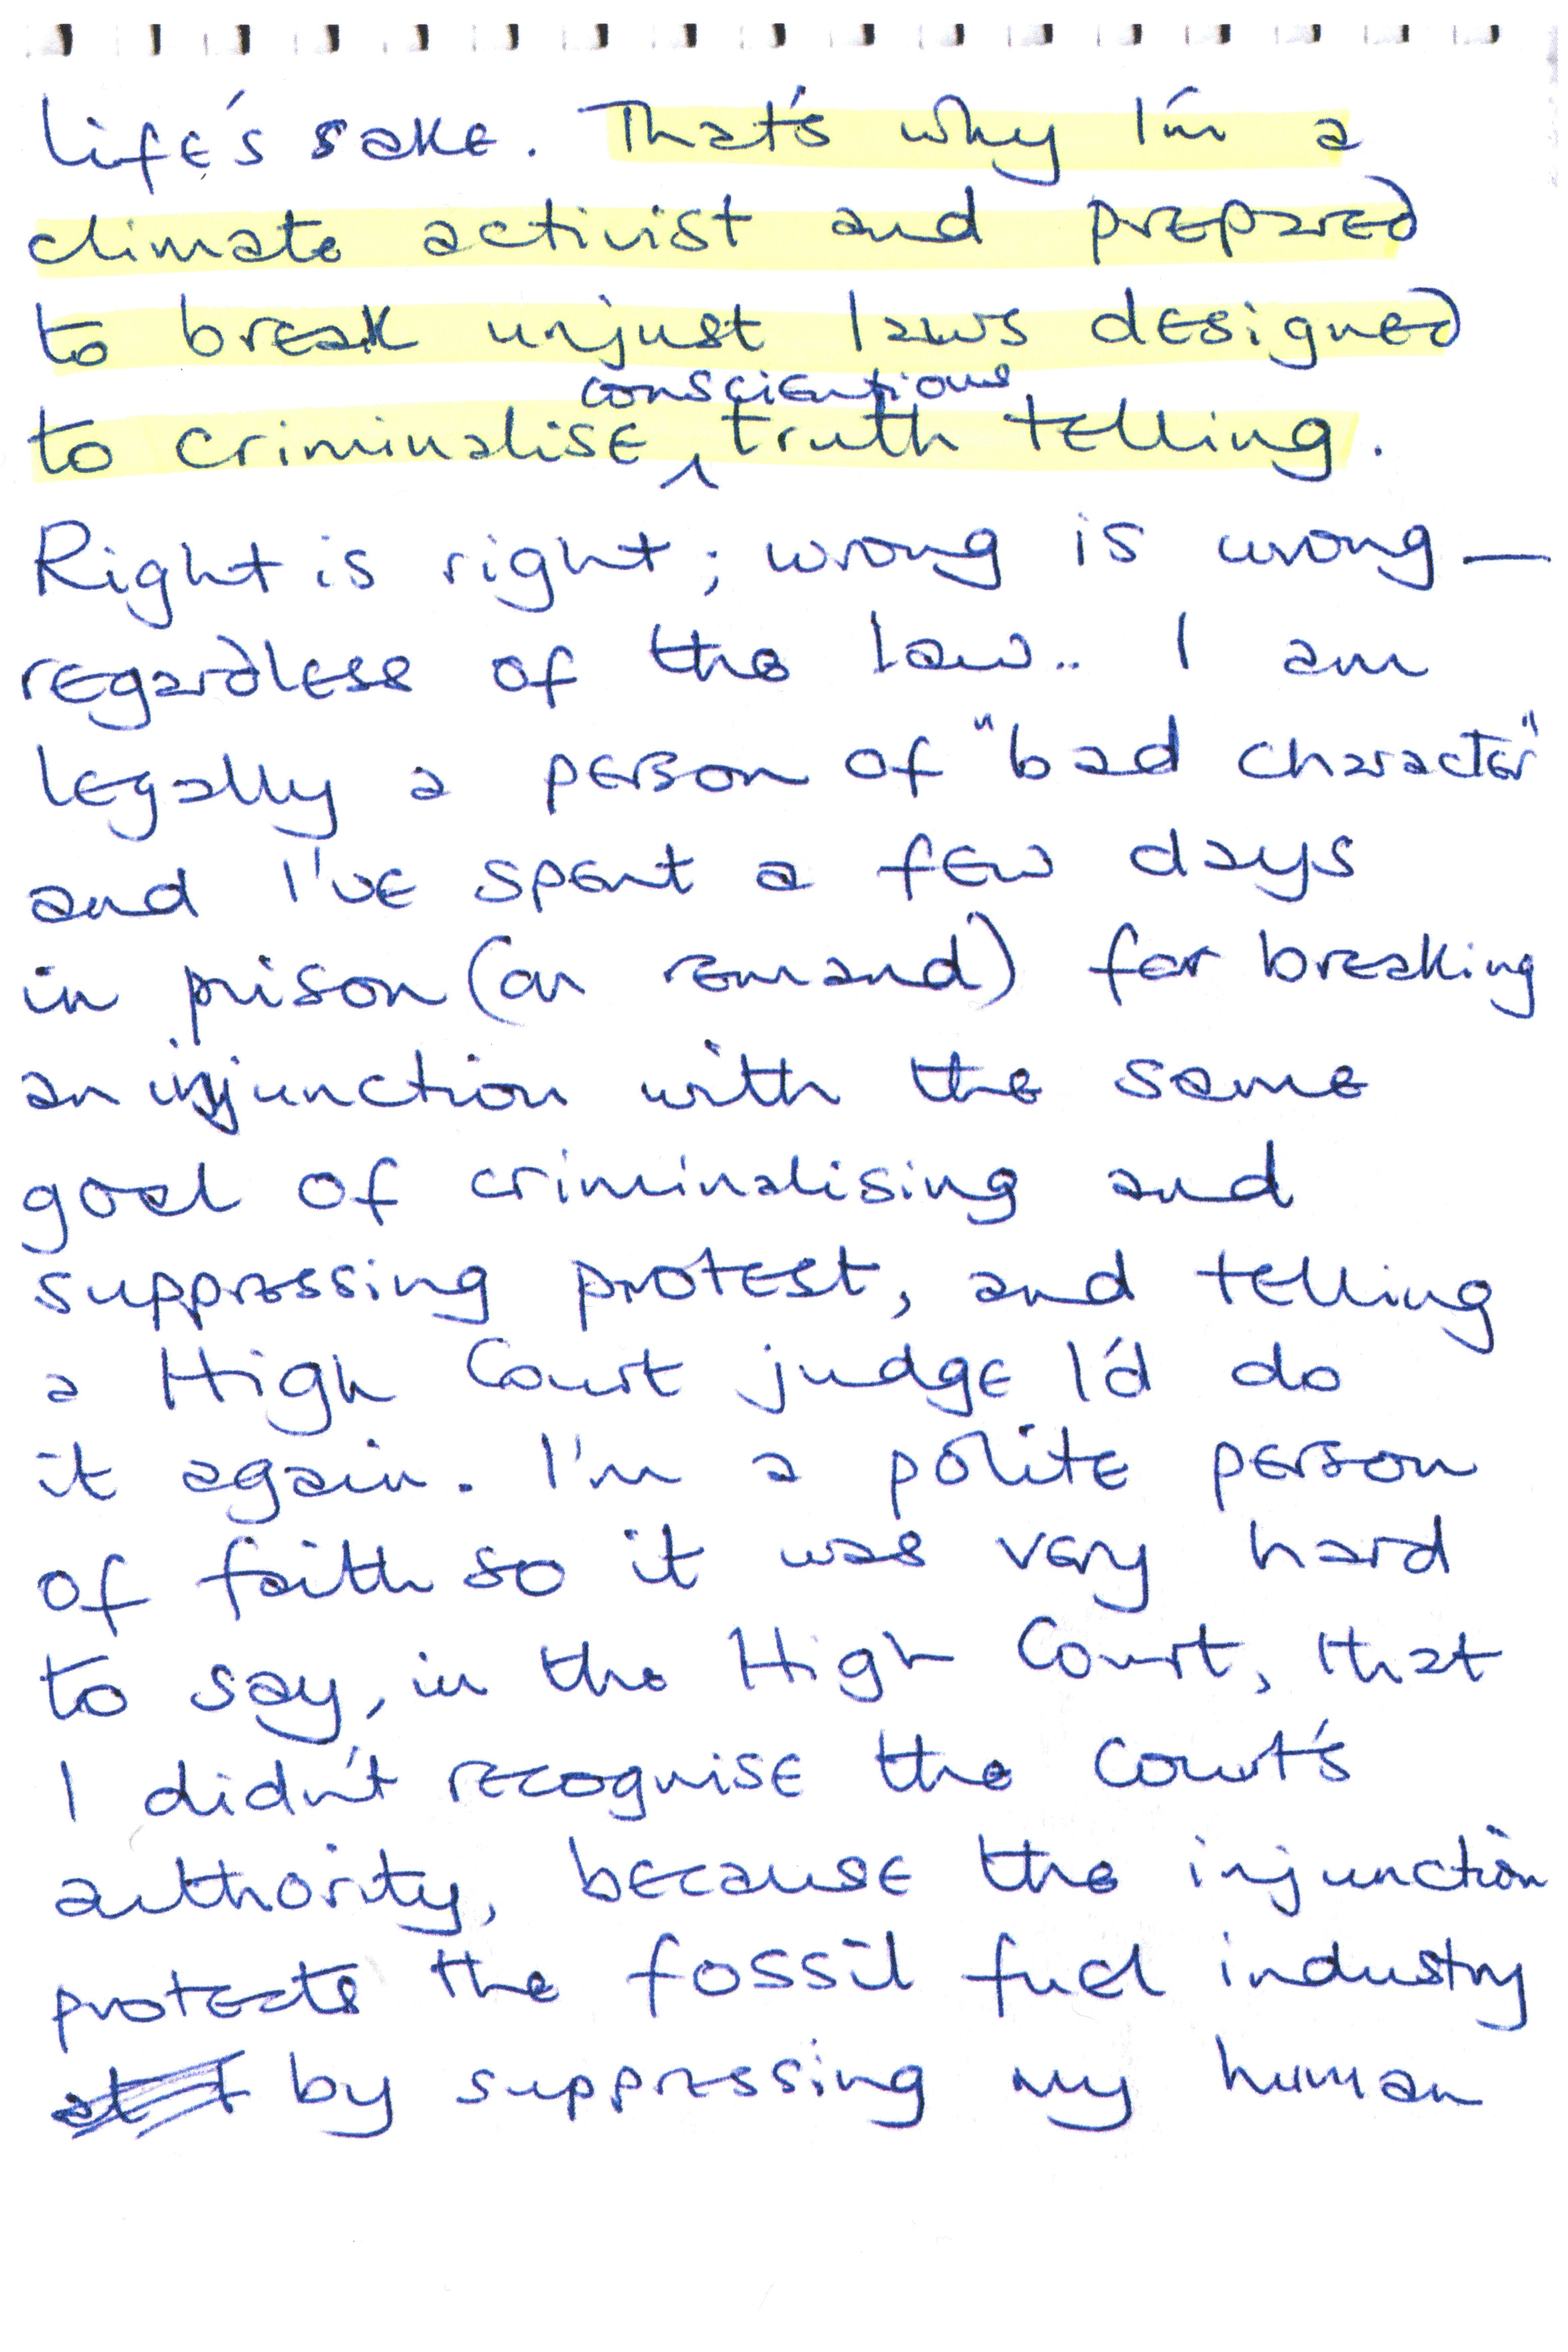 life's sake. That's why I'm a
climate activist and prepared
to break unjust laws designed
conscientious
to criminalise ^ truth telling.
Right is right; wrong is wrong —
regardless of the law.. I am
legally a person of "bad character"
and I've spent a few days
in prison (on remand) for breaking
an injunction with the same
goal of criminalising and
suppressing protest, and telling
a High Court judge I'd do
it again. I'm a polite person
of faith so it was very hard
to say, in the High Court, that
I didn't recognise the Court's
authority, because the injunction
protects the fossil fuel industry
by suppressing my human